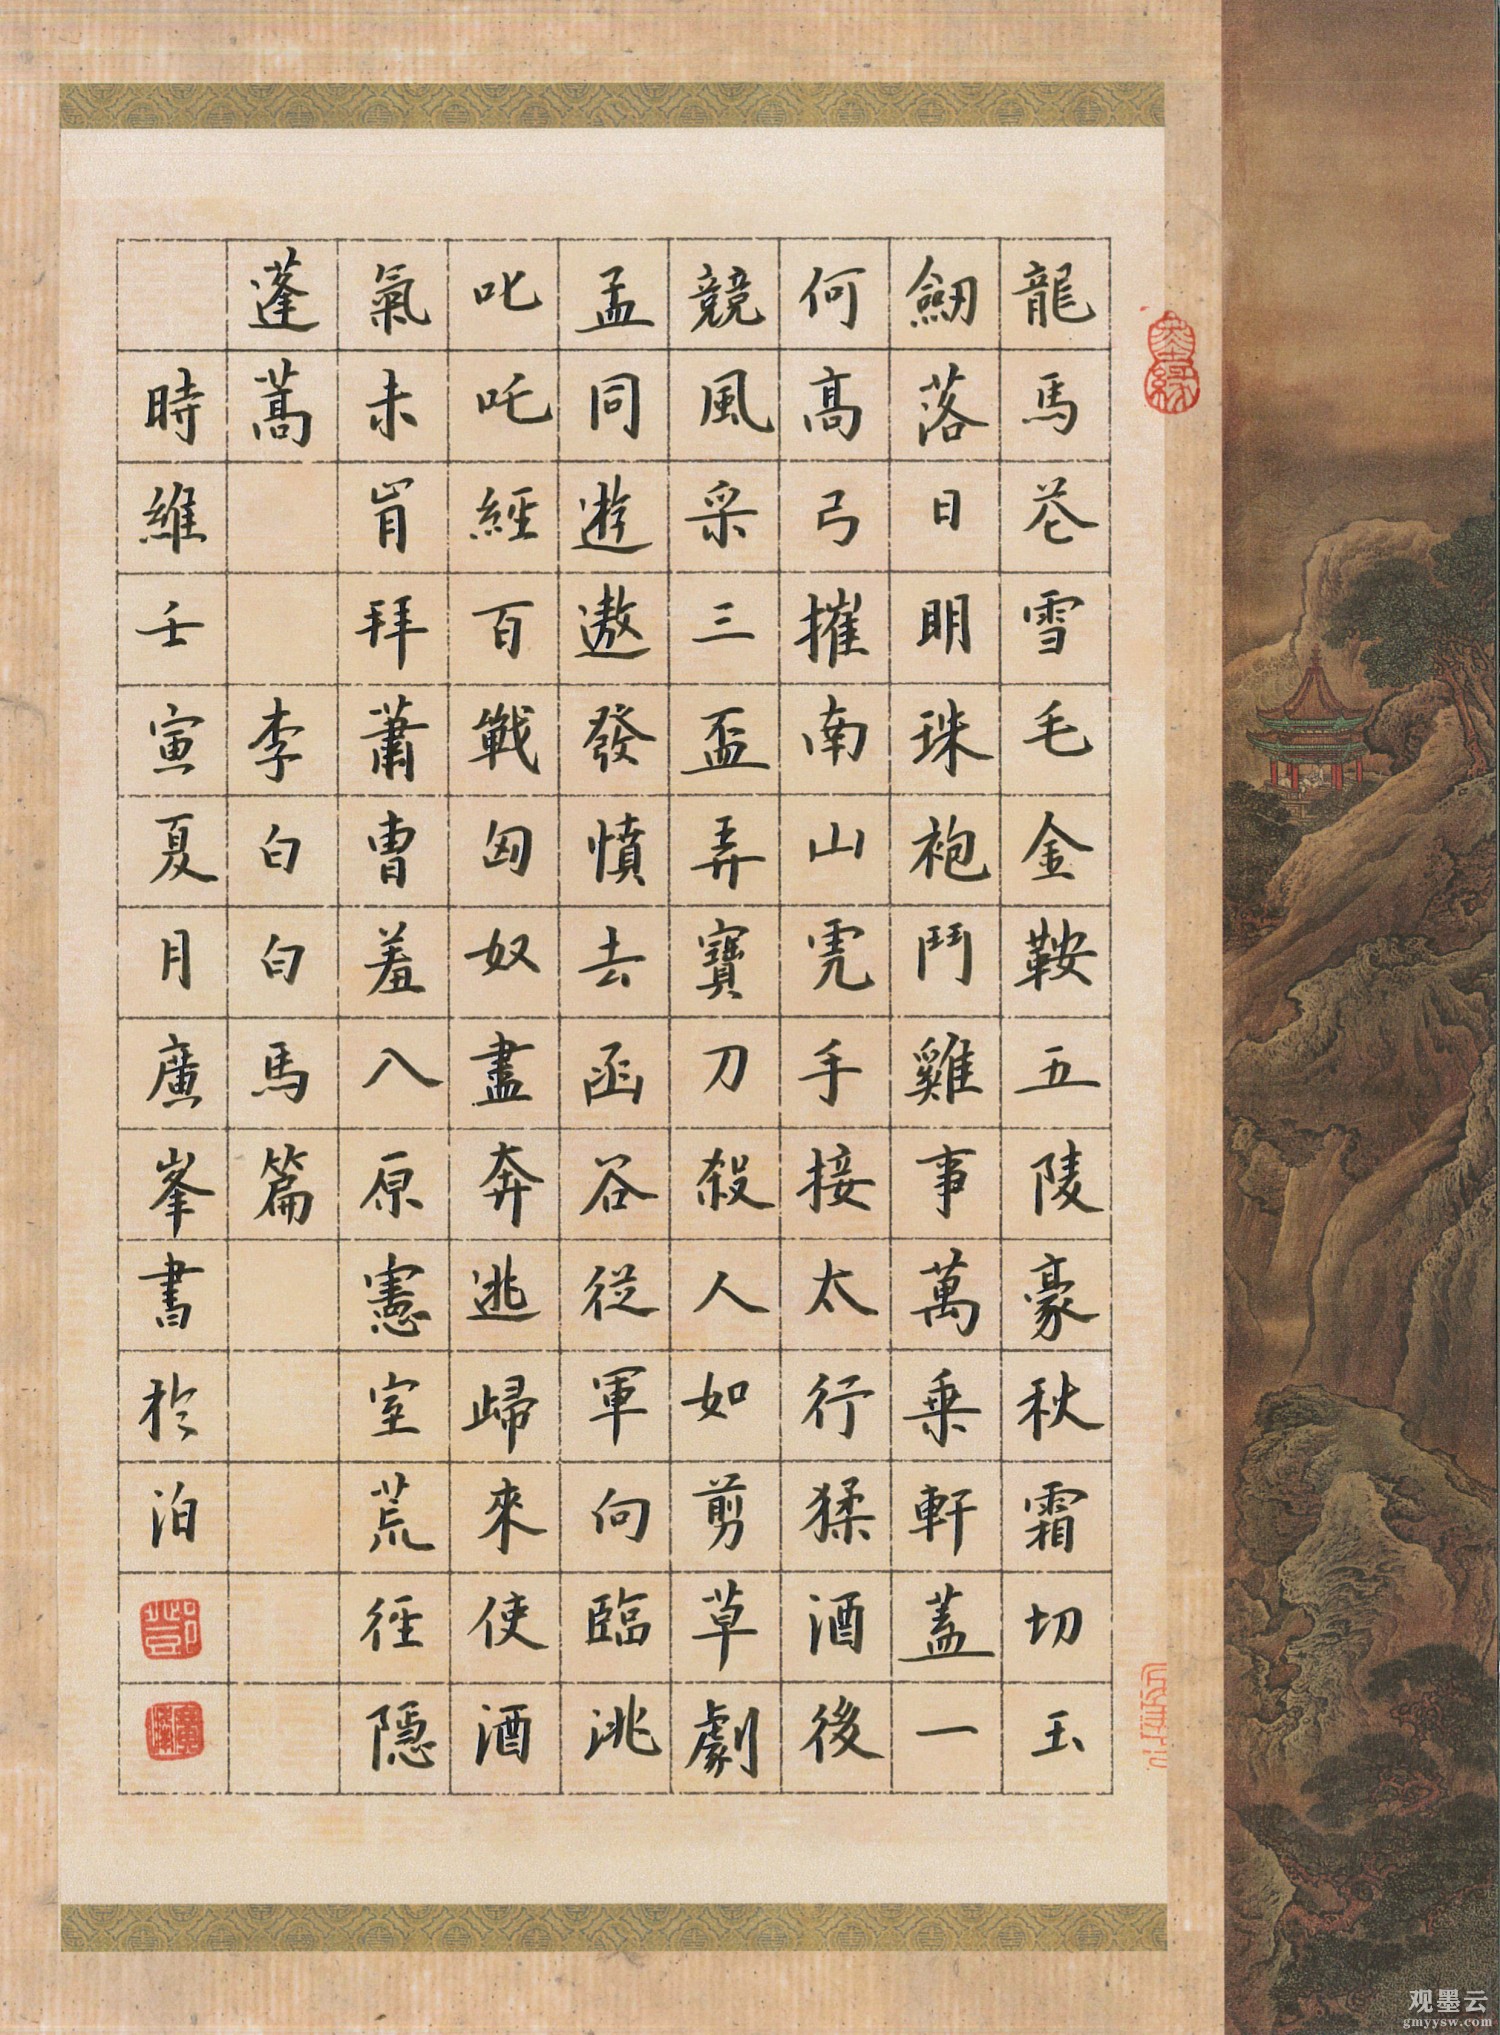 龍馬花雪毛金鞍五陵豪秋霜切玉
劒落日明珠袍鬥雞事萬乗軒蓋一
何高弓摧南山虎手接太行猱酒後
競風采三盃弄寶刀殺人如剪草劇
孟同遊遨發憤去函谷從軍向臨洮
叱吒經百戰匈奴盡奔逃歸來使酒
氣未肯拜蕭曹羞入原憲室荒徑隱
蓬蒿 李白白馬篇
時維壬寅夏月廣峯書於泊
墨緣
鄧
观墨云
gmyysw.com